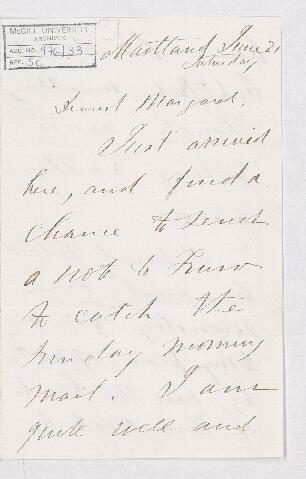 McGILL UNIVERSITY
ARCHIVES
ACC. NO. 1476/33
REF. 5c
Maitland June 21
Saturday
Dearest Margaret,
Just arrived
here, and find a
chance to send
a note to Truro
to catch the
Sunday morning
mail. I am
quite well and